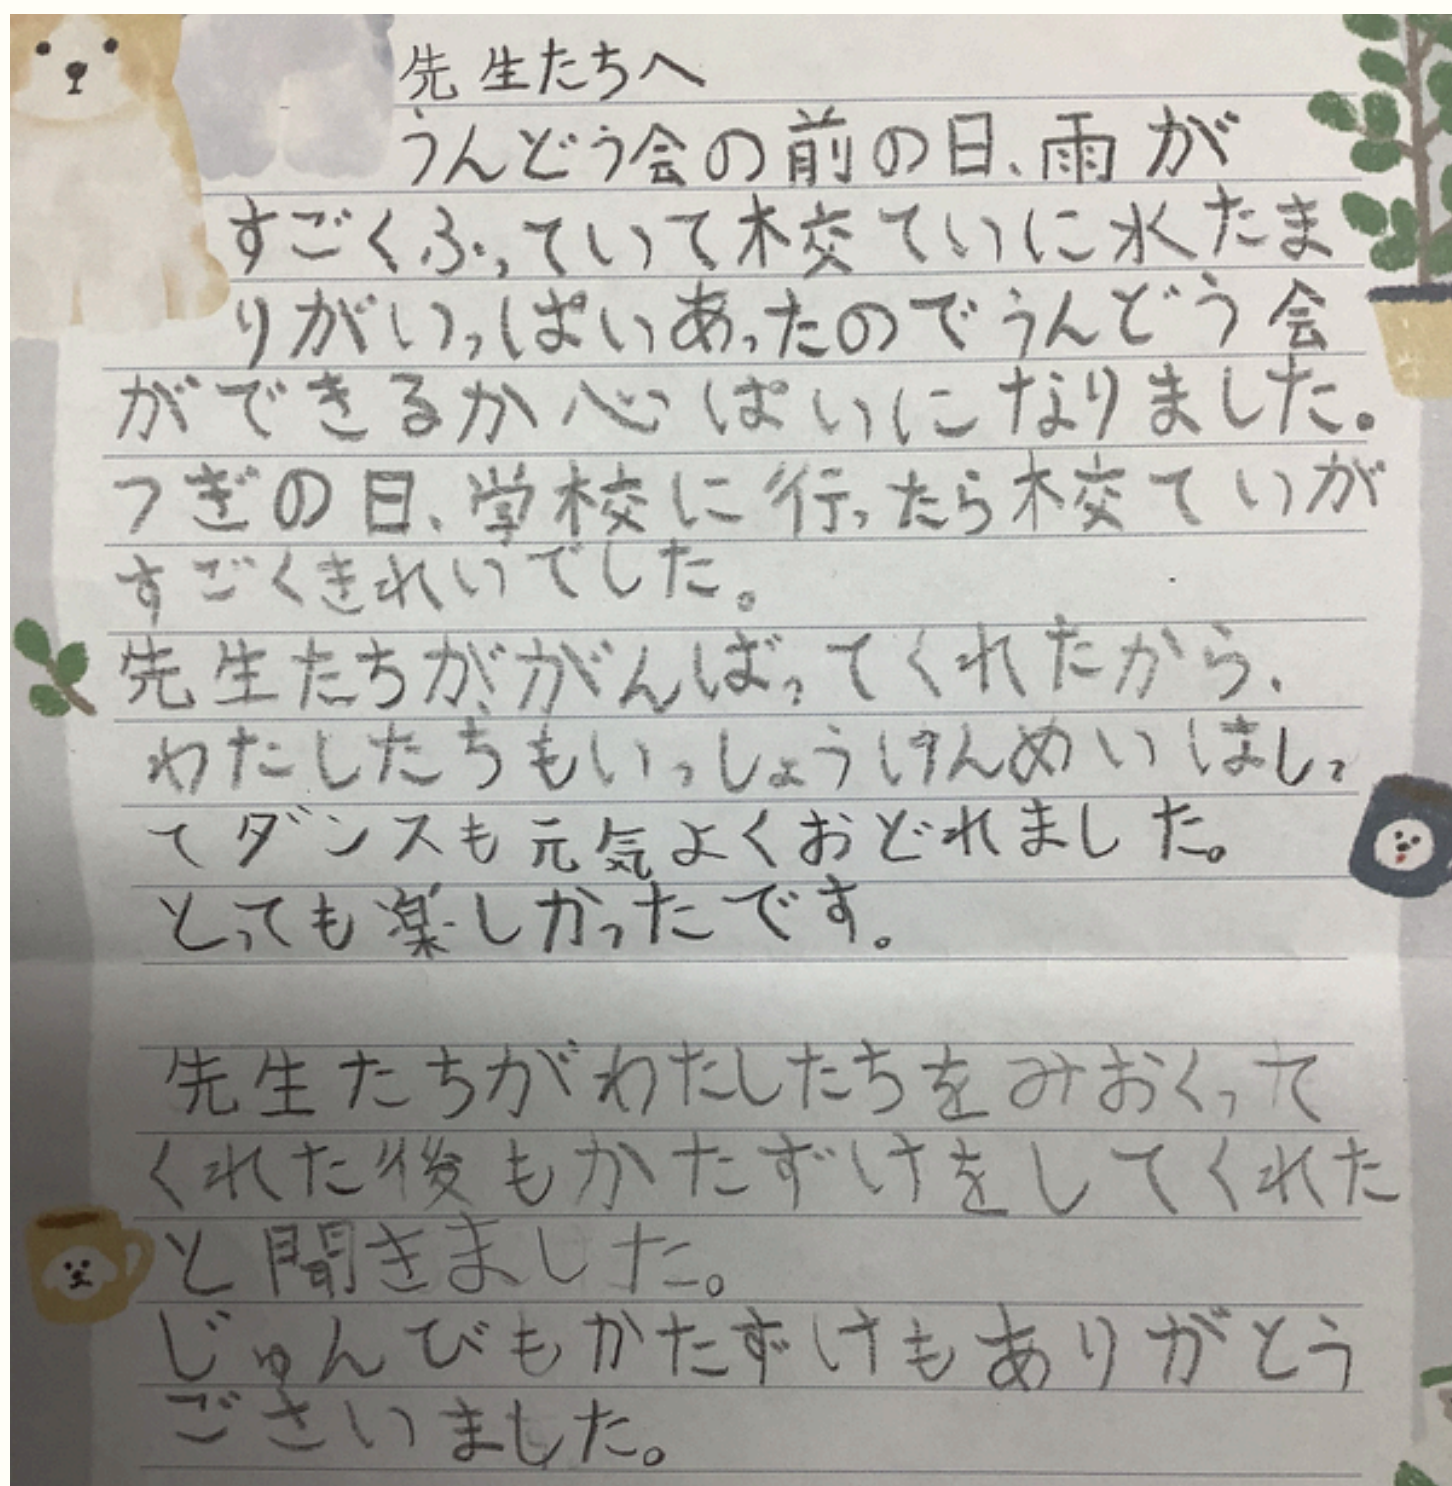 先生たちへ
うんどう会の前の日、雨が
すごくふっていて校ていに水たま
りがいっぱいあったのでうんどう会
ができるか心ぱいになりました。
つぎの日、学校に行ったら校ていが
すごくきれいでした。
先生たちががんばってくれたから、
わたしたちもいっしょうけんめいはしっ
てダンスも元気よくおどれました。
とっても楽しかったです。
先生たちがわたしたちをみおくって
くれた後もかたずけをしてくれた
と聞きました。
じゅんびもかたずけもありがとう
ございました。